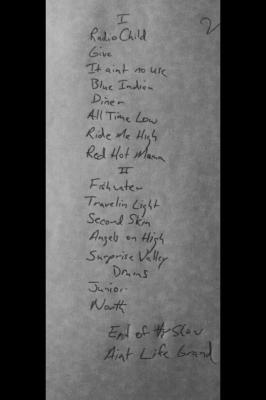 2
I
Radio Child
Give
It aint no use
Blue Indian
Diner
All Time Low
Ride Me High
Red Hot Mama
II
Fishwater
Travelin Light
Second Skin
Angels on High
Surprise Valley
Drums
Junior
North
End of the Show
Aint Life Grand